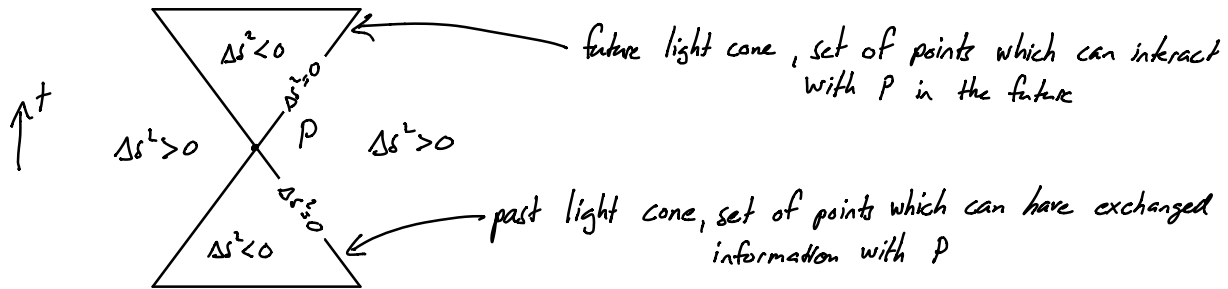 Δs²<0
future light cone, set of points which can interact
with P in the future
Δs²=0
t
P
Δs²>0
Δs²>0
Δs²=0
past light cone, set of points which can have exchanged
information with P
Δs²<0